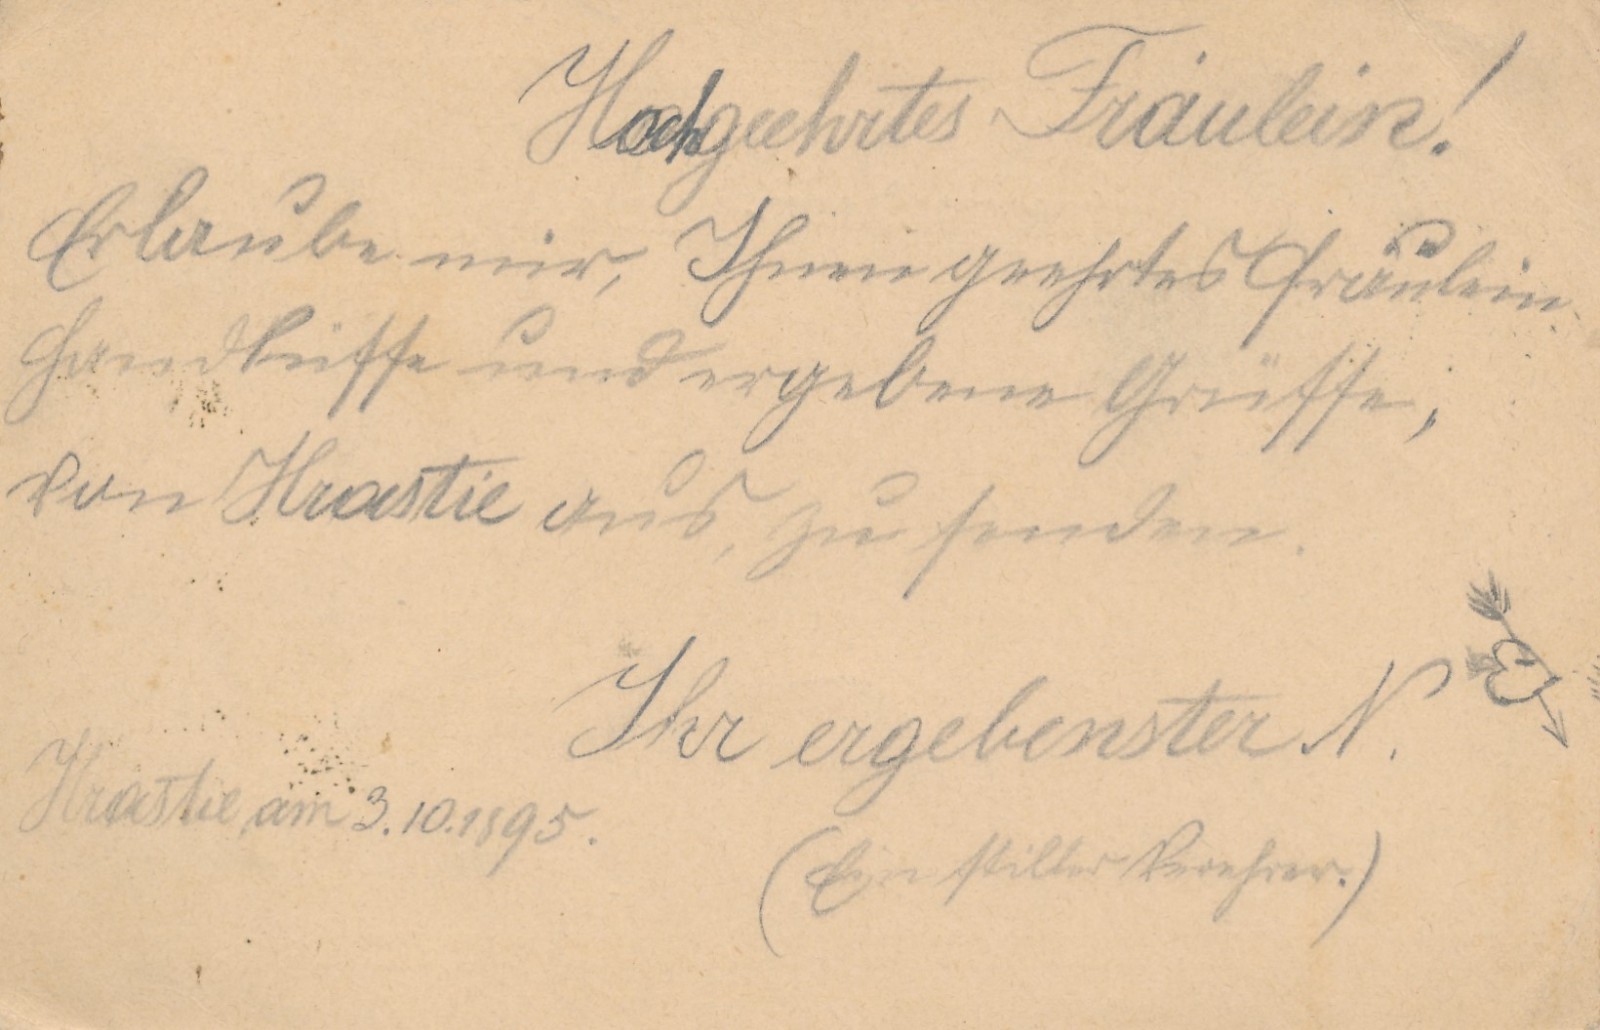 Hochgeehrtes Fräulein!
Erlaube mir, Ihnen geehrtes Fräulein
Handküsse und ergebene Grüsse,
von Hrastie aus, zu senden.
Ihr ergebenster N.
Hrastie am 3.10.1895.
(Ein stiller Verehrer.)